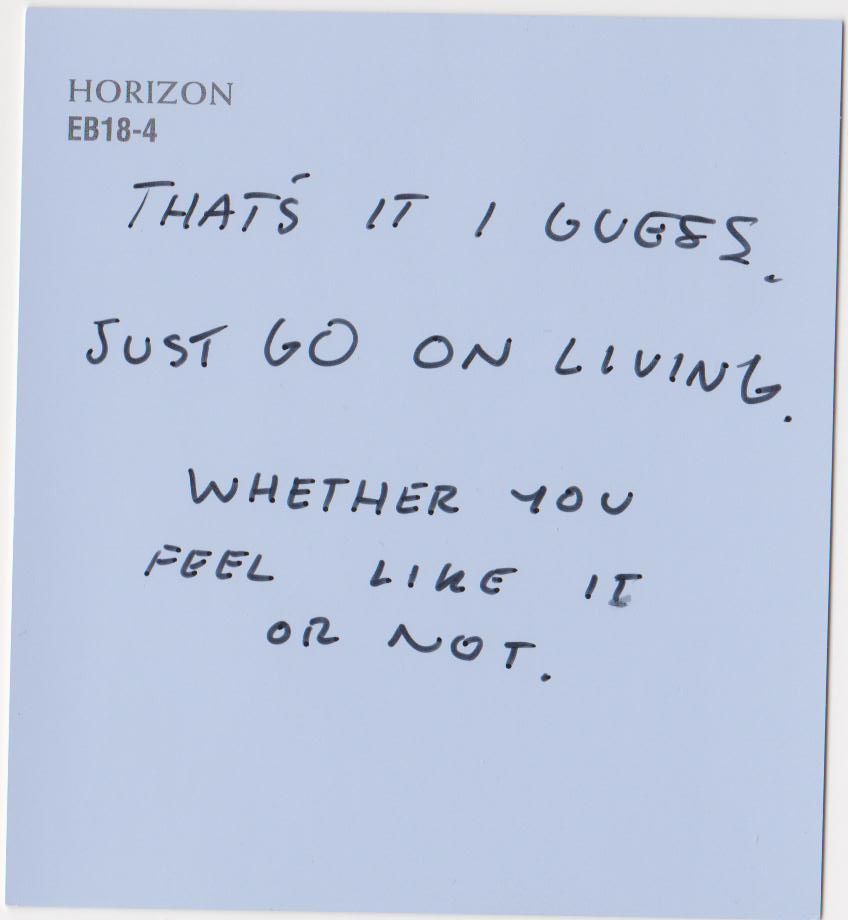 HORIZON
EB18-4
THAT'S IT I GUESS.
JUST GO ON LIVING.
WHETHER YOU
FEEL LIKE IT
OR NOT.